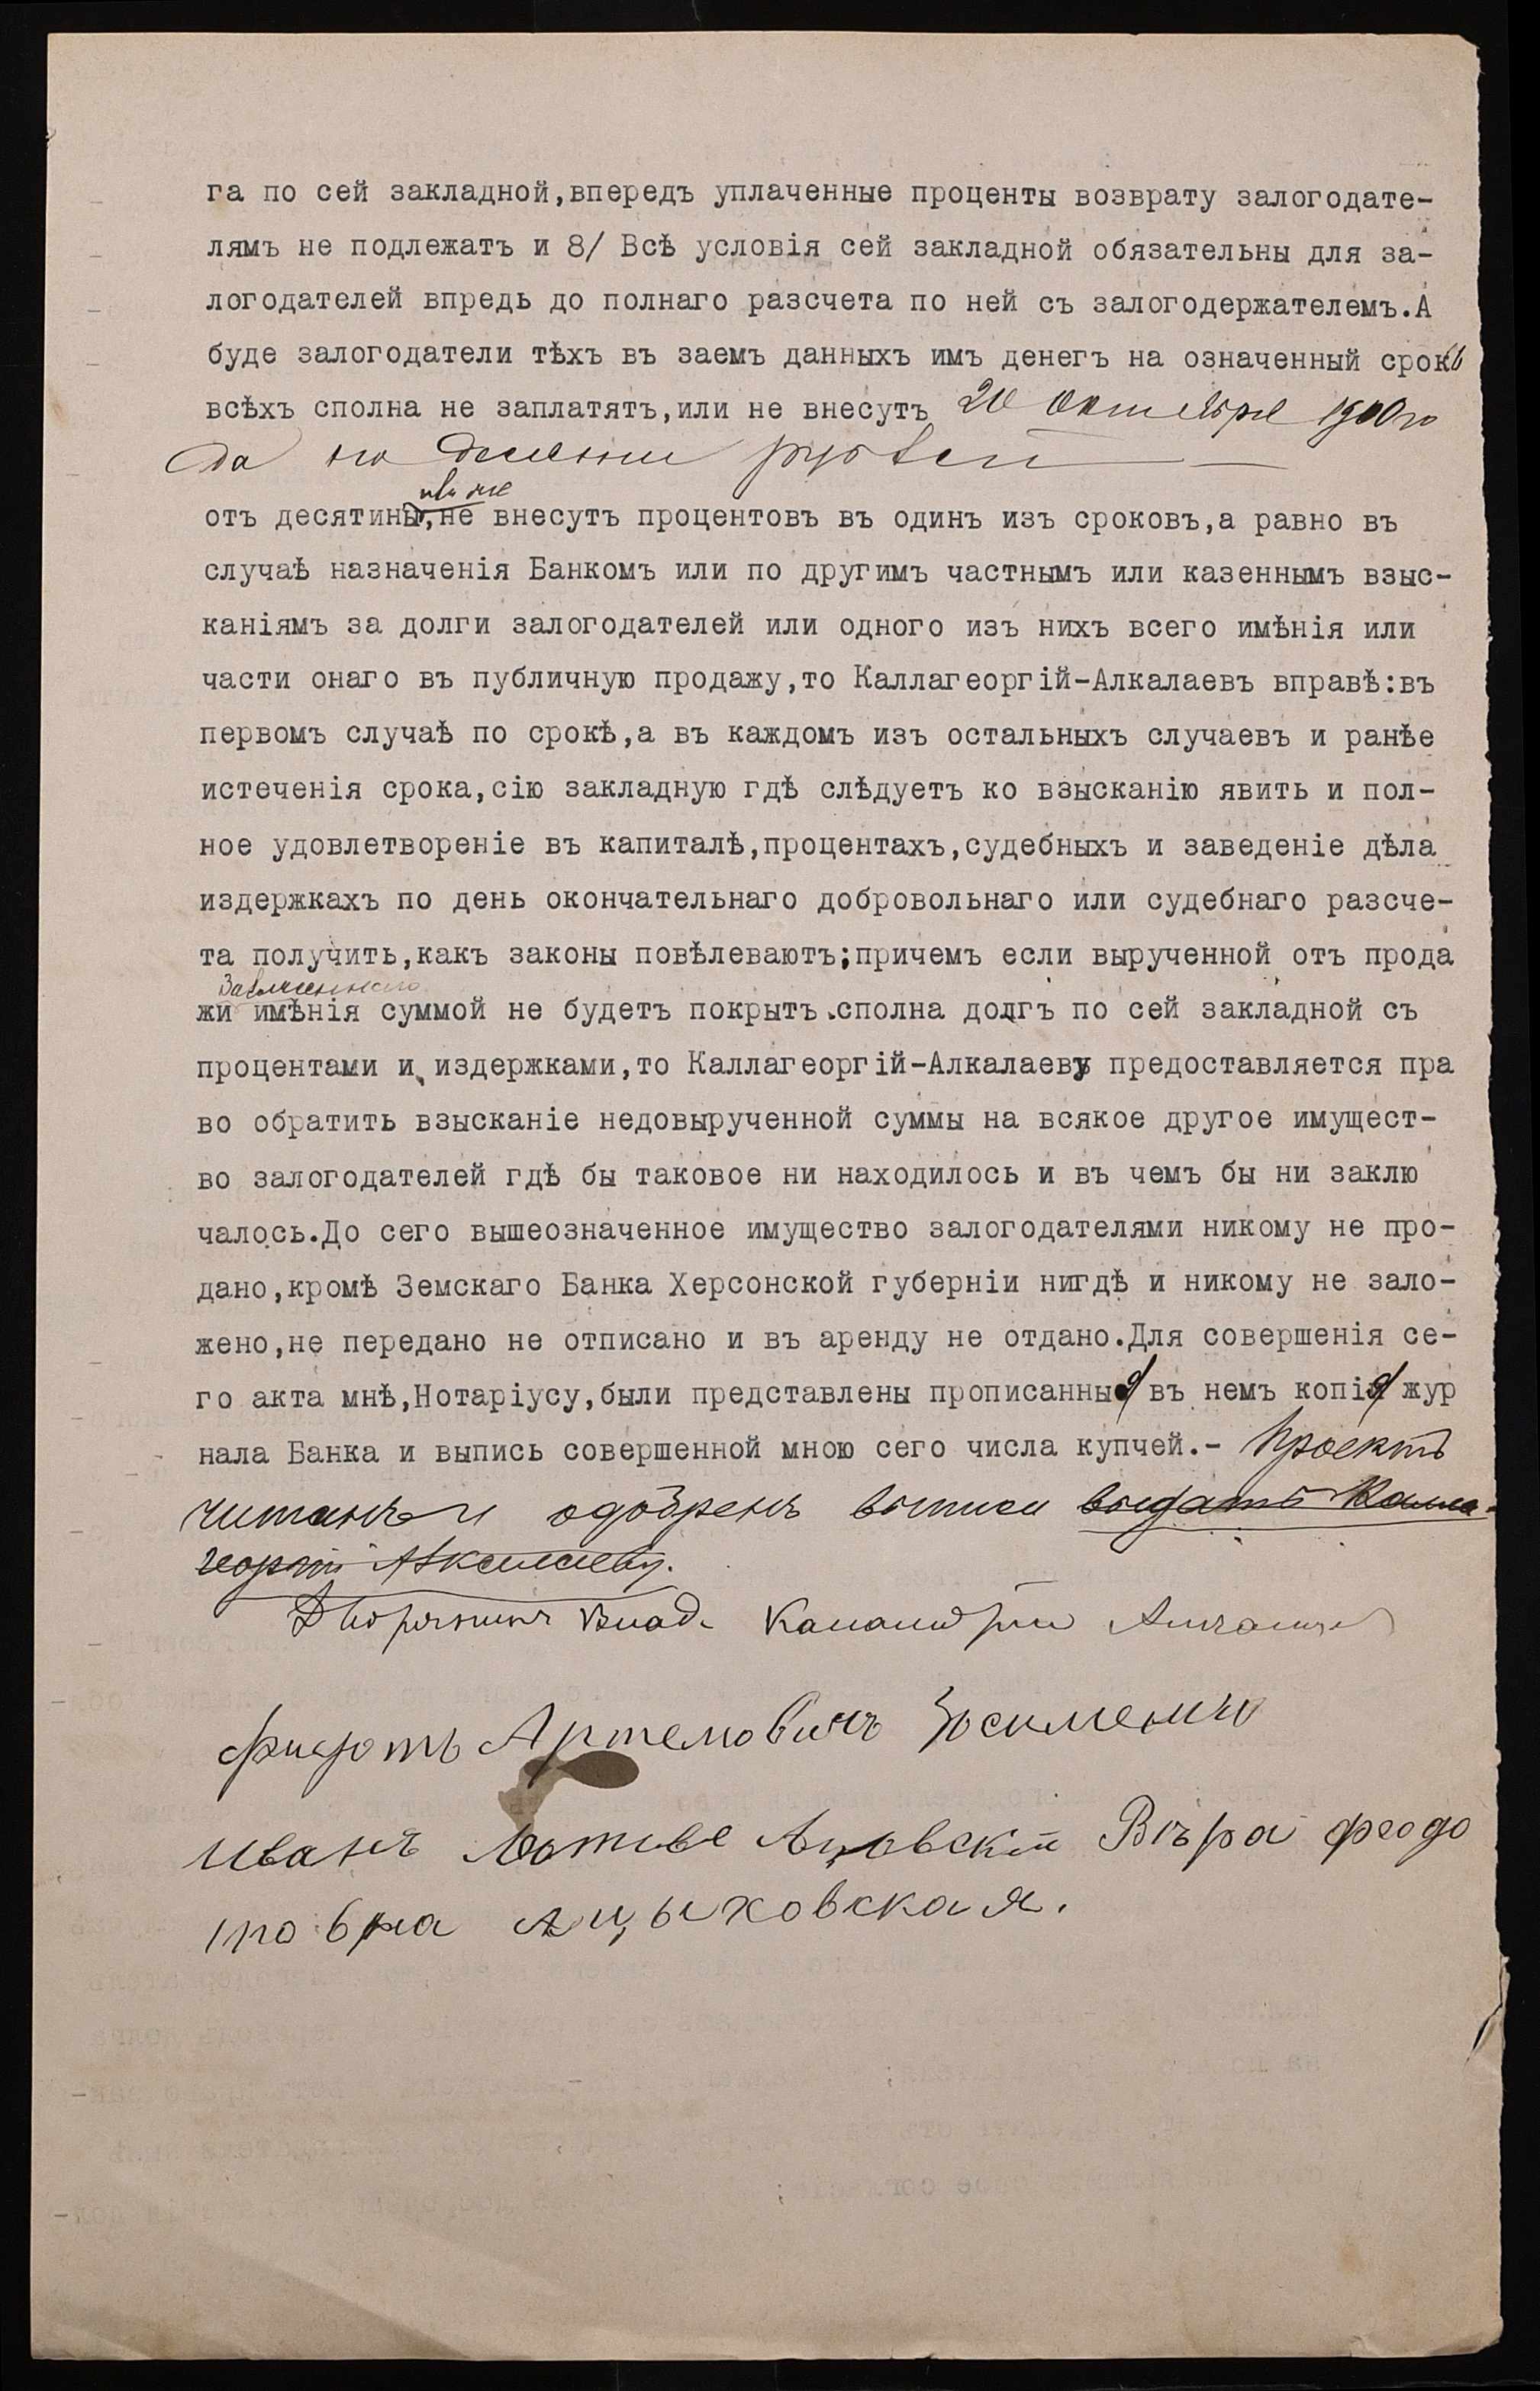 га по сей закладной,впередъ уплаченные проценты возврату залогодате-
лямъ не подлежатъ и 8/ Всѣ условія сей закладной обязательны для за-
логодателей впредь до полнаго разсчета по ней съ залогодержателемъ.А
буде залогодатели тѣхъ въ заемъ данныхъ имъ денегъ на означенный срокъ
всѣхъ сполна не заплатятъ,или не внесутъ 20 октября 1900 го
да по десяти рублей
или же
отъ десятины,не внесутъ процентовъ въ одинъ изъ сроковъ,а равно въ
случаѣ назначенія Банкомъ или по другимъ частнымъ или казеннымъ взыс-
каніямъ за долги залогодателей или одного изъ нихъ всего имѣнія или
части онаго въ публичную продажу,то Каллагеоргій-Алкалаевъ вправѣ:въ
первомъ случаѣ по срокѣ,а въ каждомъ изъ остальныхъ случаевъ и ранѣе
истеченія срока,сію закладную гдѣ слѣдуетъ ко взысканію явить и пол-
ное удовлетвореніе въ капиталѣ,процентахъ,судебныхъ и заведеніе дѣла
издержкахъ по день окончательнаго добровольнаго или судебнаго разсче-
та получить,какъ законы повѣлеваютъ;причемъ если вырученной отъ прода
жи имѣнія суммой не будетъ покрытъ сполна долгъ по сей закладной съ
процентами и издержками,то Каллагеоргій-Алкалаеву предоставляется пра
во обратить взысканіе недовырученной суммы на всякое другое имущест-
во залогодателей гдѣ бы таковое ни находилось и въ чемъ бы ни заклю
чалось.До сего вышеозначенное имущество залогодателями никому не про-
дано,кромѣ Земскаго Банка Херсонской губерніи нигдѣ и никому не зало-
жено,не передано не отписано и въ аренду не отдано.Для совершенія се-
го акта мнѣ,Нотаріусу,были представлены прописанныя въ немъ копія жур
нала Банка и выпись совершенной мною сего числа купчей.- Проектъ
читанъ и одобренъ выписи выдать Калла-
георгій Алкалаеву.
Дворянинъ Влад.
Артемовичъ
Иванъ Вѣра Феодо
ровна Лцыховская.